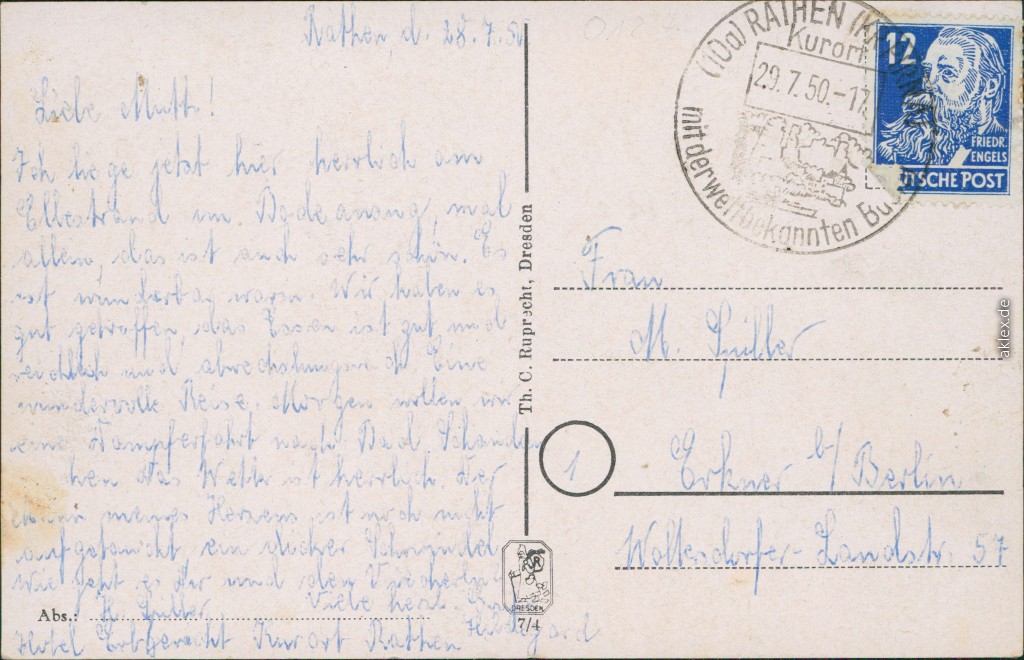 Rathen, d. 28.7.50
Liebe Mutti!
Ich liege jetzt hier herrlich am
Elbestrand im Badeanzug, mal
allein, das ist auch sehr schön. Es
ist wunderbar warm. Wir haben es
gut getroffen, das Essen ist gut und
reichlich und abwechslungsreich. Eine
wundervolle Reise. Morgen wollen wir
eine Dampferfahrt nach Bad Schandau
das Wetter ist herrlich. Der
meines Herzens ist noch nicht
aufgetaucht ein
Wie geht es Dir und dem
Viele herzl.
Abs.: H.
Hildegard
Hotel Erbgericht Kurort Rathen
Th. C. Ruprecht, Dresden
DRESDEN
7/4
(10a) RATHEN
Kurort
29.7.50.-17
mit der weltbekannten
12
FRIEDR.
ENGELS
TSCHE POST
Frau
M.
1
Erkner b/Berlin
Woltersdorfer-Landstr. 57
aklex.de